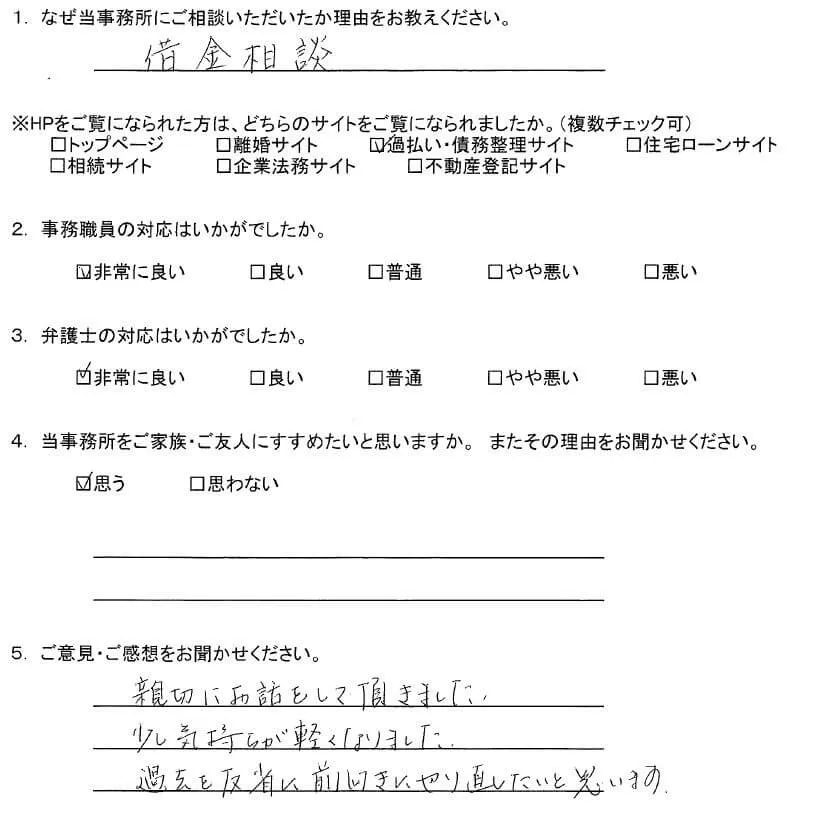 1. なぜ当事務所にご相談いただいたか理由をお教えください。
借金相談
※HPをご覧になられた方は、どちらのサイトをご覧になられましたか。(複数チェック可)
□トップページ □離婚サイト ☑過払い・債務整理サイト □住宅ローンサイト
□相続サイト □企業法務サイト □不動産登記サイト
2. 事務職員の対応はいかがでしたか。
☑非常に良い □良い □普通 □やや悪い □悪い
3. 弁護士の対応はいかがでしたか。
☑非常に良い □良い □普通 □やや悪い □悪い
4. 当事務所をご家族・ご友人にすすめたいと思いますか。 またその理由をお聞かせください。
☑思う □思わない
5. ご意見・ご感想をお聞かせください。
親切にお話をして頂きました.
少し気持ちが軽くなりました.
過去を反省し前向きにやり直したいと思います.